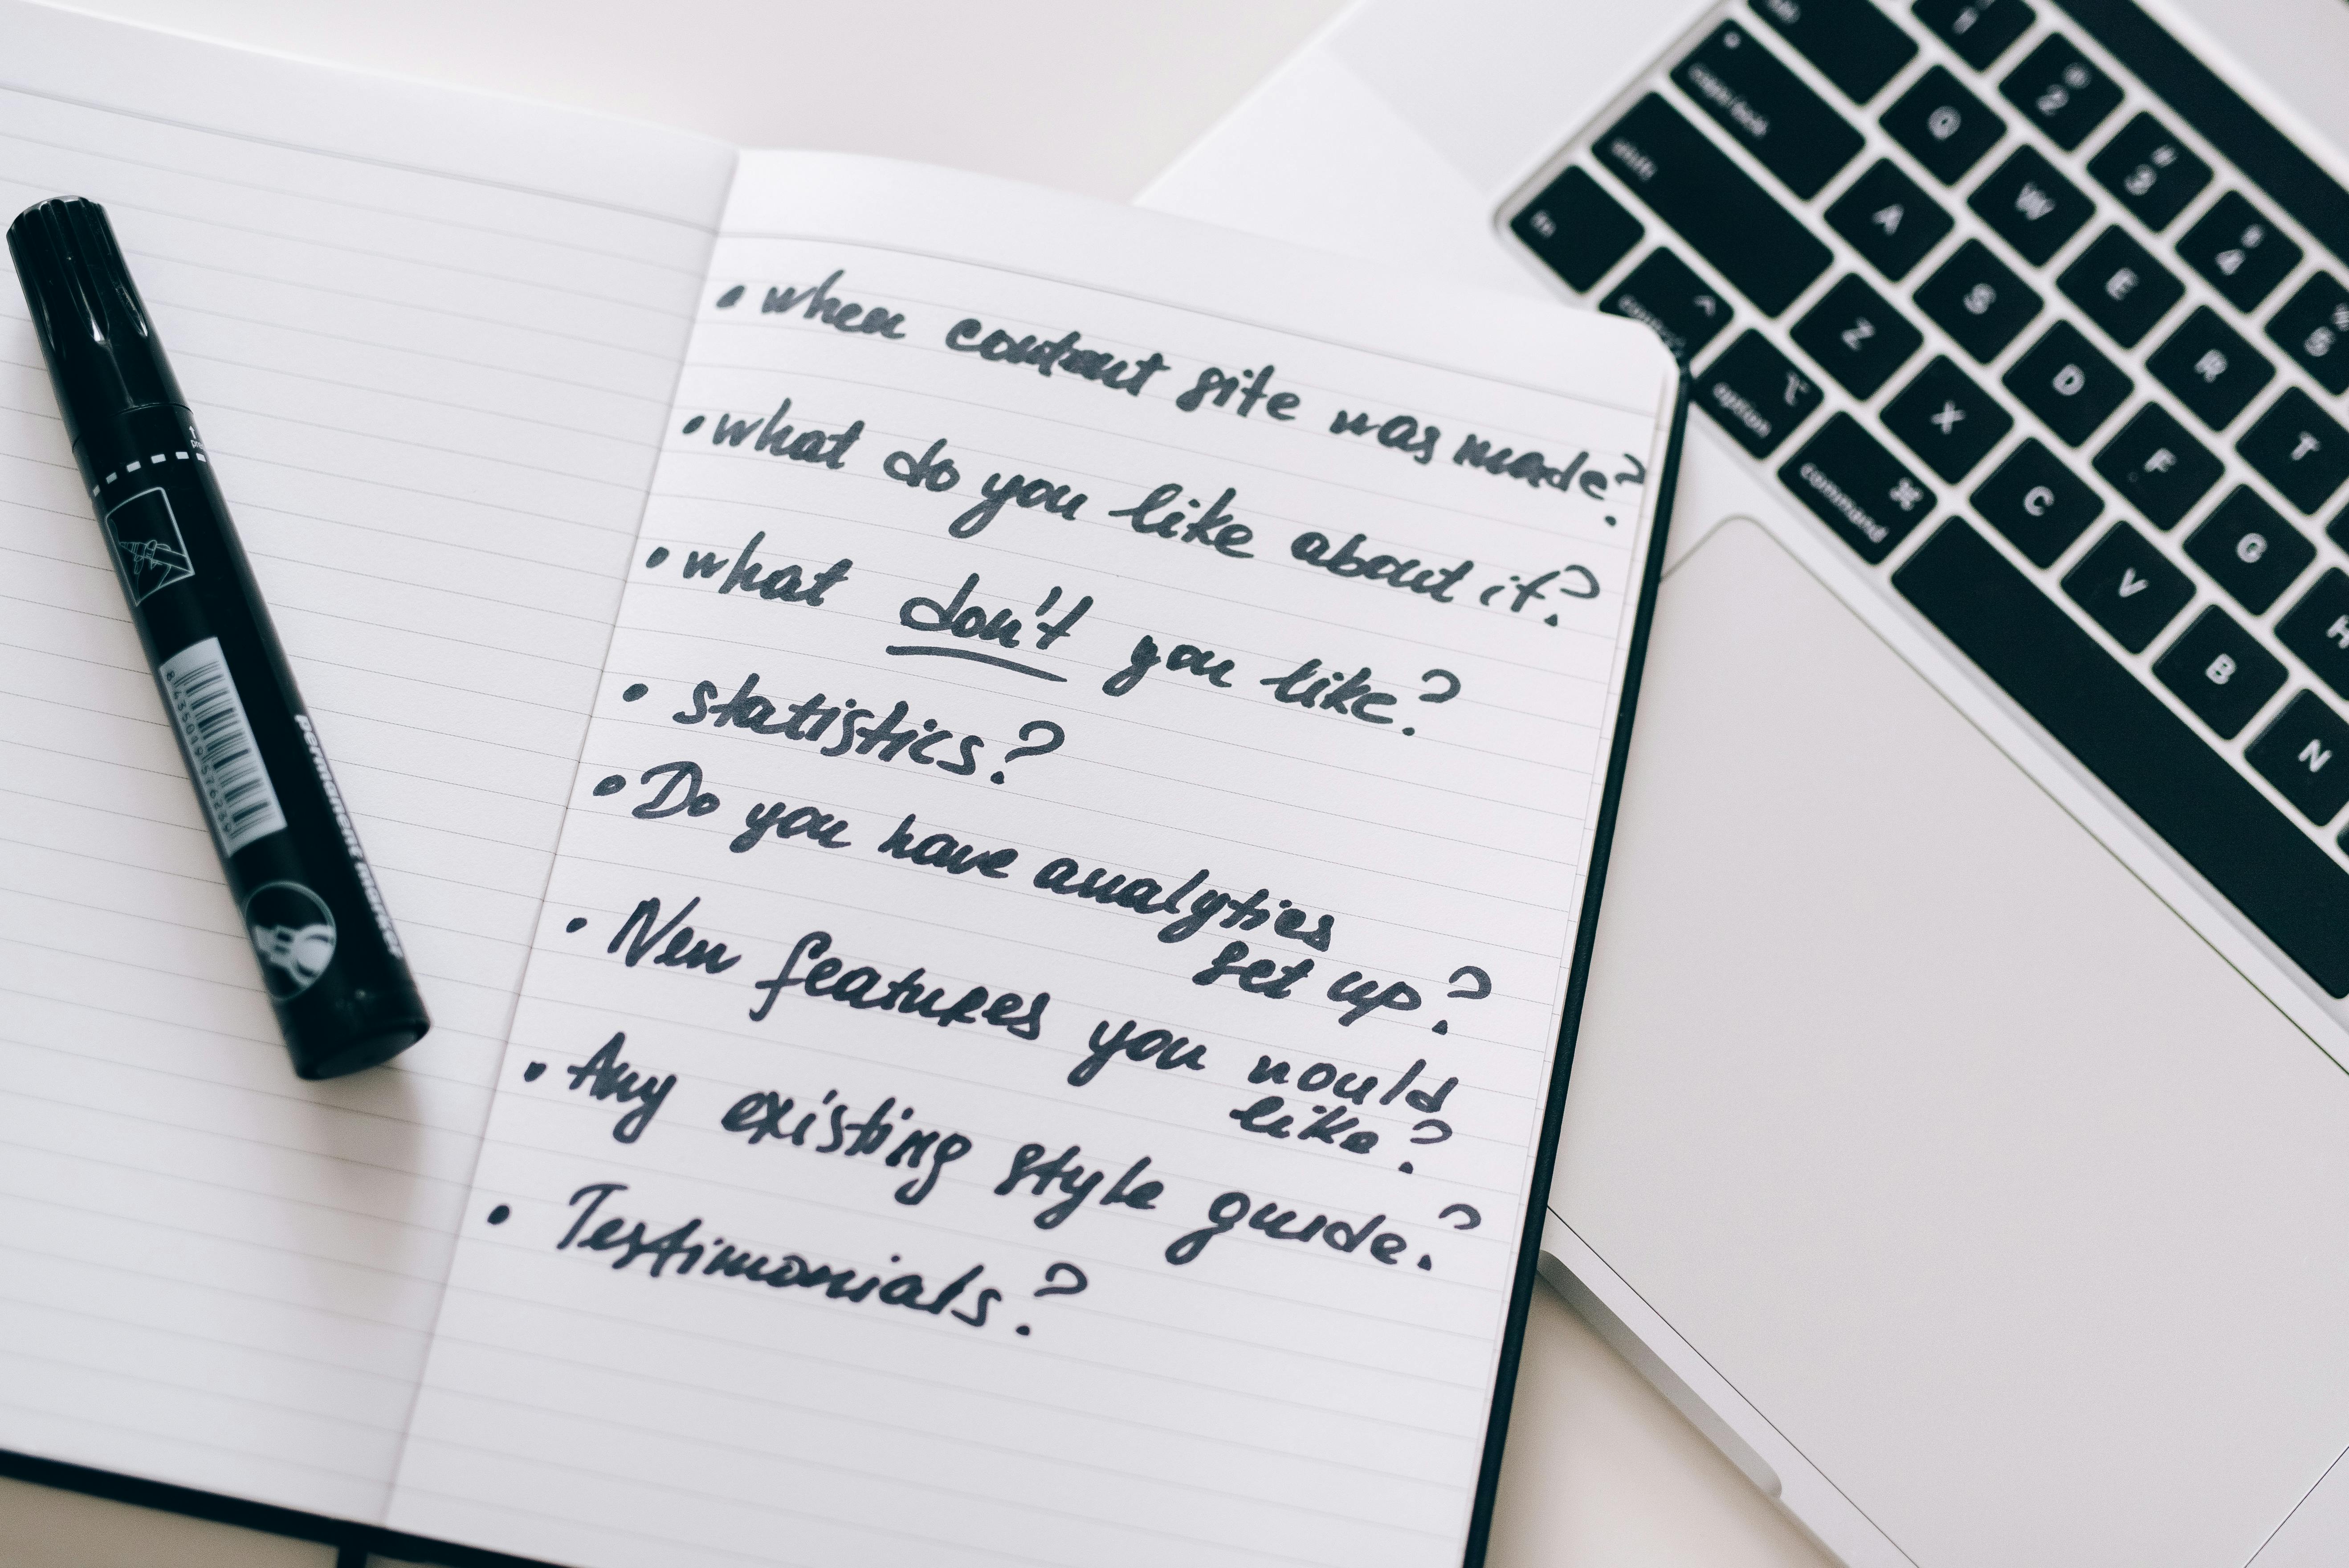 • when content site was made?
• what do you like about it?
• what don't you like?
• statistics?
• Do you have analytics
set up?
• New features you would
like?
• Any existing style guide?
• Testimonials?
permanent marker
8 435019 576239
esc
! 1
@ 2
# 3
$ 4
% 5
caps lock
Q W E R T
shift
A S D F G H
fn
Z X C V B N
control
option
command